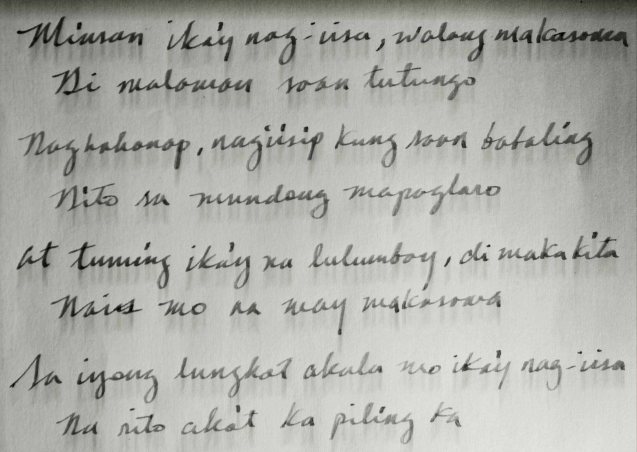 Minsan ika'y nag-iisa, walang makasama
Di malaman saan tutungo
Naghahanap, nagiisip kung saan babaling
Dito sa mundong mapaglaro
At tuming ika'y na lulumbay, di makakita
Nais mo na may makasama
Sa iyong lungkot akala mo ika'y nag-iisa
Na rito ako't ka piling ka